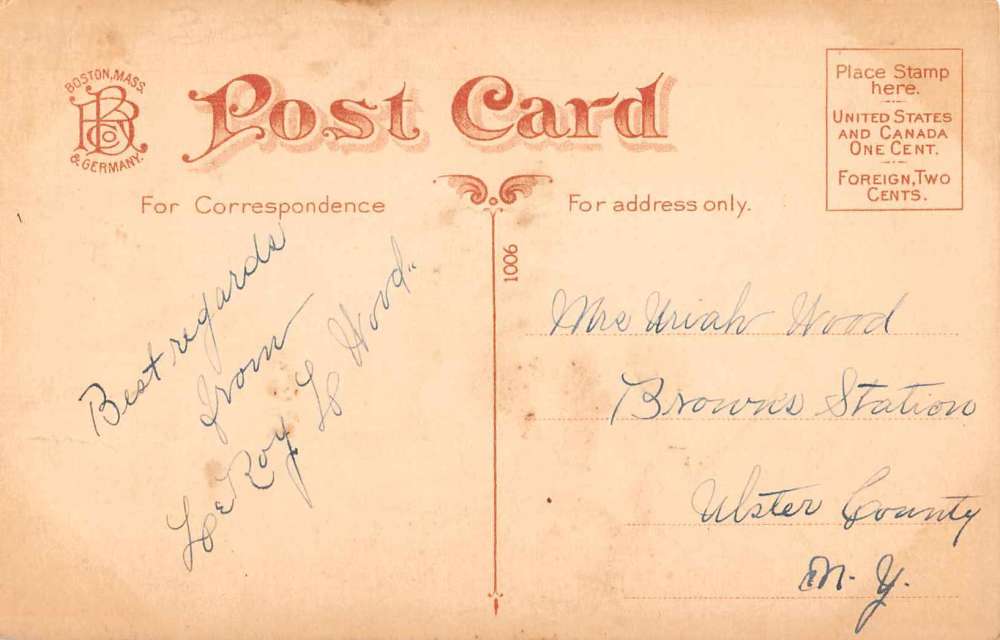 BOSTON, MASS.
RB Co
& GERMANY.
Post Card
Place Stamp
here.
UNITED STATES
AND CANADA
ONE CENT.
FOREIGN, TWO
CENTS.
For Correspondence
For address only.
1006
Best regards
from
LeRoy L Wood.
Mrs Uriah Wood
Browns Station
Ulster County
N. Y.